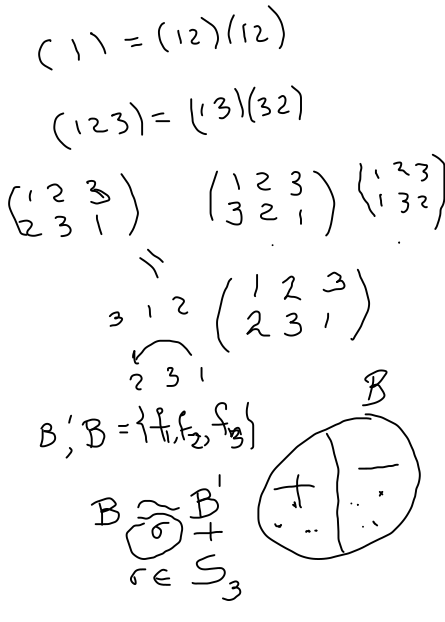 (1) = (12)(12)
(123) = (13)(32)
(1 2 3) (1 2 3) (1 2 3)
(2 3 1) (3 2 1) (1 3 2)
=
3 1 2 (1 2 3)
(2 3 1)
2 3 1
B
B', B = {f1, f2, f3}
+ −
B ≅ B'
σ +
σ ∈ S3